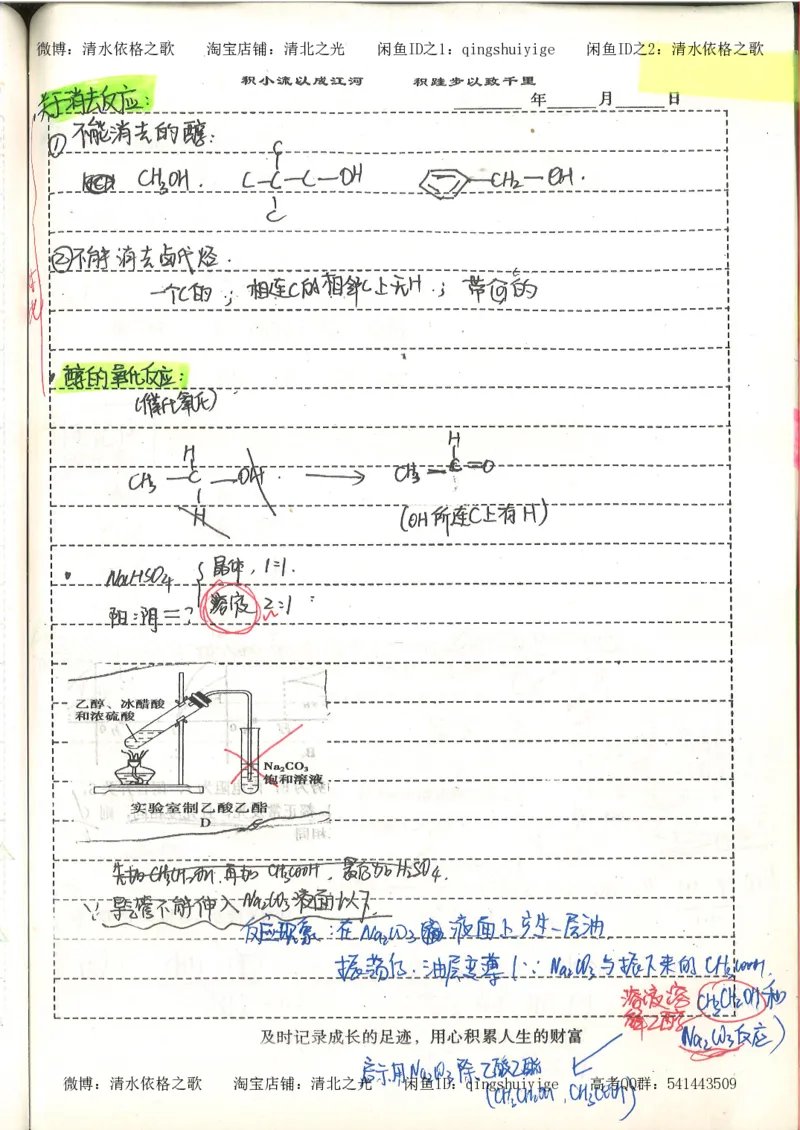 微博：清水依格之歌 淘宝店铺：清北之光 闲鱼ID之1：qingshuiyige 闲鱼ID之2：清水依格之歌
积小流以成江河 积跬步以致千里
年 月 日
关于消去反应：
①不能消去的醇：
CH3OH. C-C-C-OH -CH2-OH.
C
C
②不能消去卤代烃.
一个C的；相连C的相邻C上无H.；带 的
醇的氧化反应：
(催化氧化)
H
CH3-C-OH. → CH3-C=O
H
H
(OH所连C上有H)
NaHSO4 { 晶体，1=1.
阳：阴=? 溶液 2=1
乙醇、冰醋酸
和浓硫酸
Na2CO3
饱和溶液
实验室制乙酸乙酯
D
先加CH3CH2OH，再加CH3COOH，最后加H2SO4.
∵导管不能伸入Na2CO3液面以下.
反应现象：在Na2CO3液面上产生一层油
振荡后.油层变薄(∵Na2CO3与振下来的CH3COOH.
溶液溶 CH3CH2OH和
解乙醇 Na2CO3反应)
启示用Na2CO3除乙酸乙酯
(CH3CH2OH，CH3COOH)
及时记录成长的足迹，用心积累人生的财富
微博：清水依格之歌 淘宝店铺：清北之光 闲鱼ID：qingshuiyige 高考QQ群：541443509